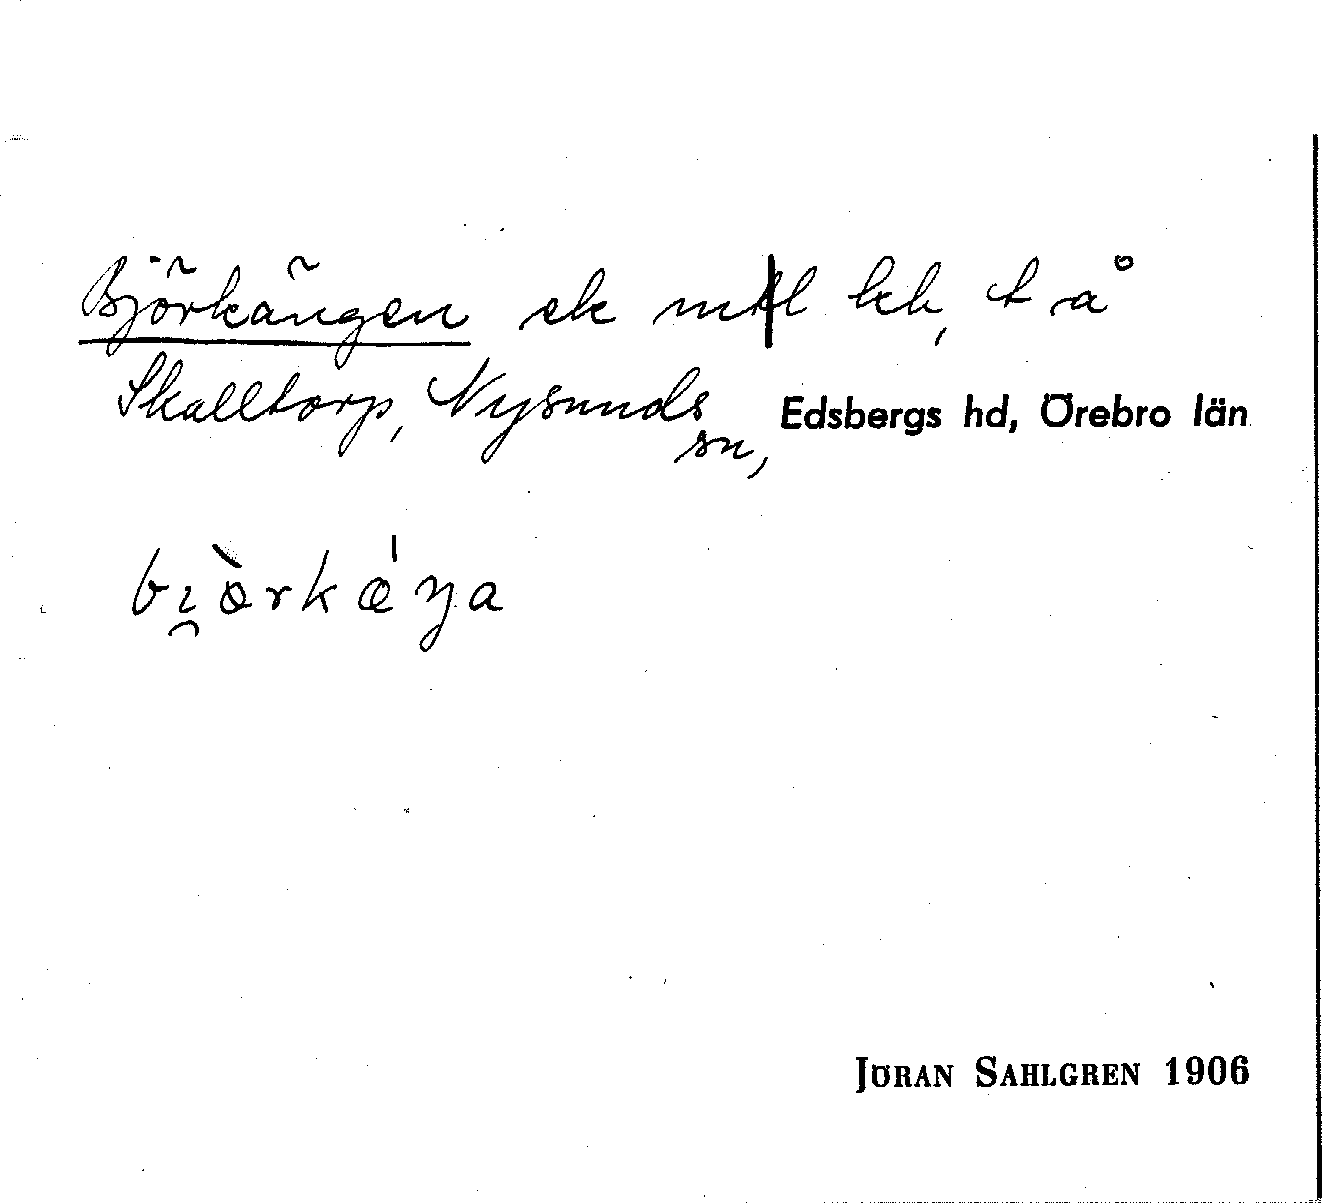 Björkängen ek mtl kh, t å
Skalltorp, Nysunds sn, Edsbergs hd, Örebro län
bi̯ò̱rkǽŋa
JÖRAN SAHLGREN 1906